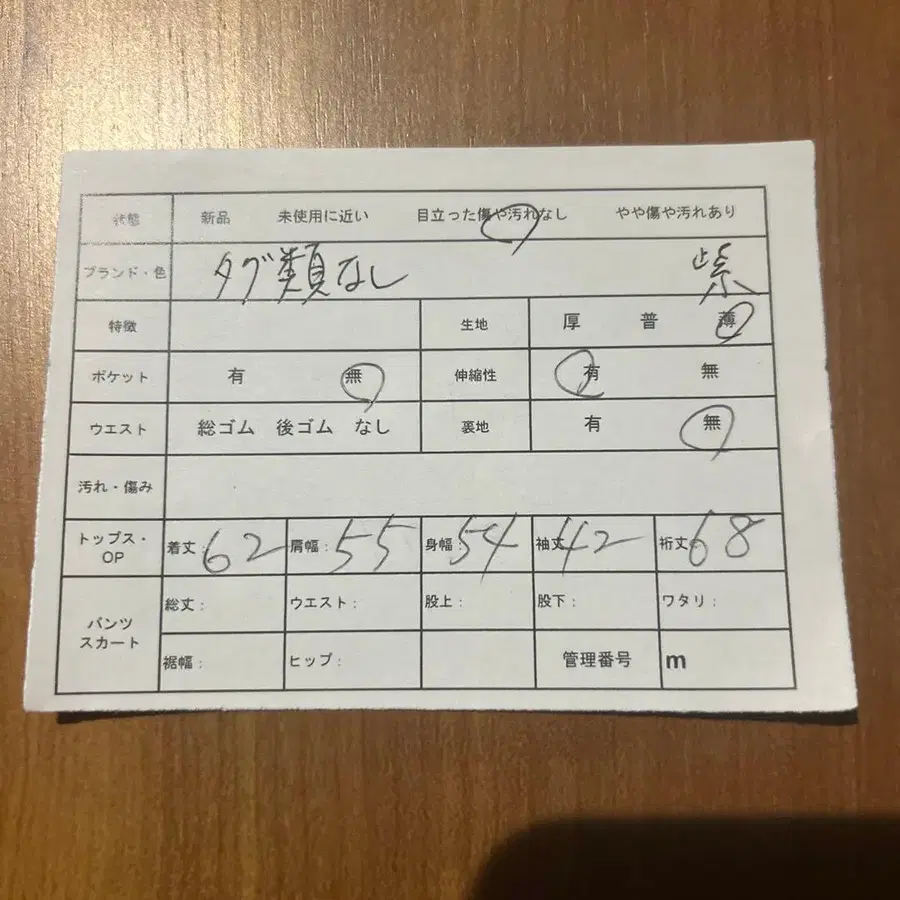 状態 新品 未使用に近い 目立った傷や汚れなし やや傷や汚れあり
ブランド・色 タグ類なし 紫
特徴 生地 厚 普 薄
ポケット 有 無 伸縮性 有 無
ウエスト 総ゴム 後ゴム なし 裏地 有 無
汚れ・傷み
トップス・OP 着丈:62 肩幅:55 身幅:54 袖丈:42 裄丈:68
パンツ スカート 総丈: ウエスト: 股上: 股下: ワタリ:
裾幅: ヒップ: 管理番号 m